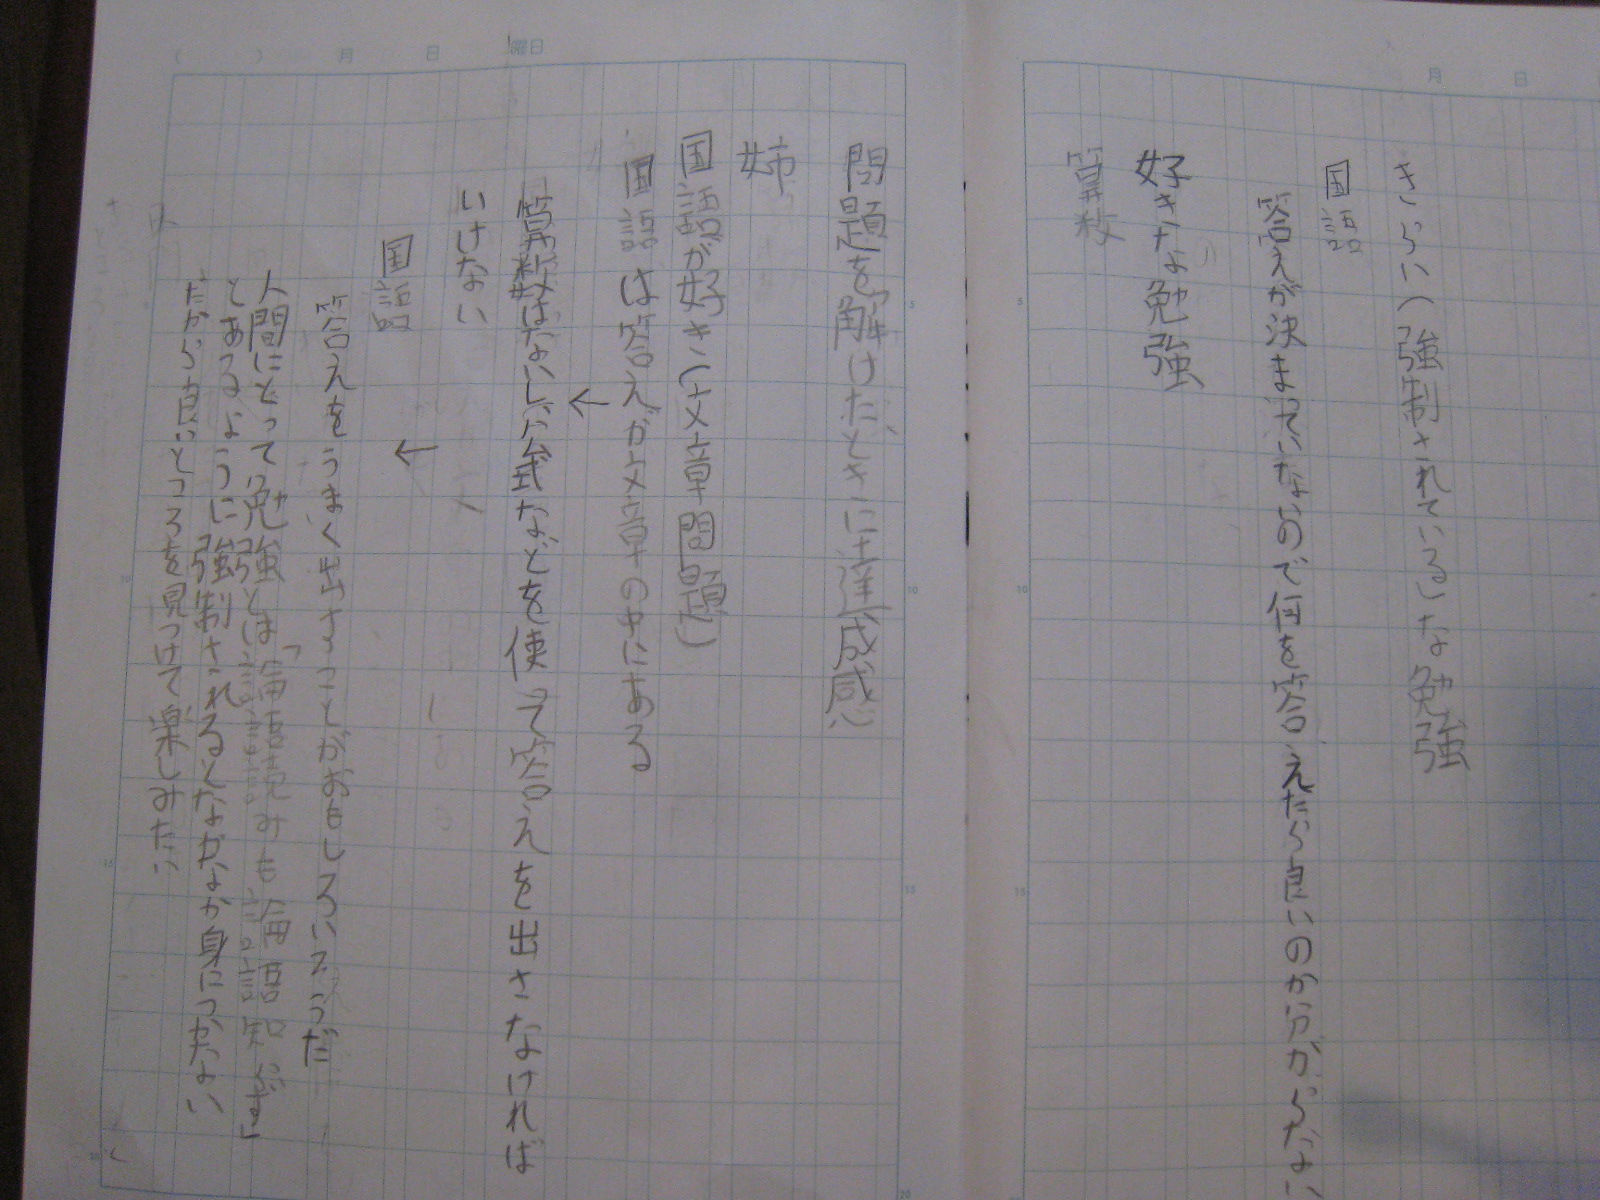 月 日
きらい(強制されている)な勉強
国語
答えが決まっていないので何を答えたら良いのか分がらない
好きな勉強
算数
( ) 月 日 曜日
問題を解けたときに達成感
姉
国語が好き(文章問題)
国語は答えが文章の中にある
↓
算数はないし、公式などを使って答えを出さなければ
いけない
↓
国語
答えをうまく出すことがおもしろいそうだ
人間にとって勉強とは「論語読みも論語知らず」
とあるように強制されるとなかなか身につかない
だから良いところを見つけて楽しみたい